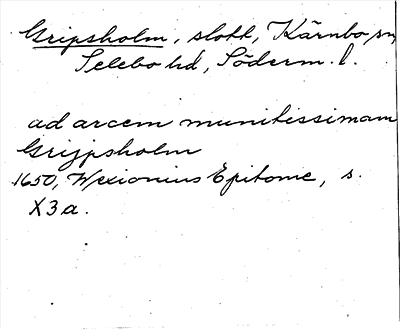 Gripsholm, slott, Kärnbo sn,
Selebo hd, Söderm. l.
ad arcem munitissimam
Grijpsholm
1650, Wexionius Epitome, s.
X3a.